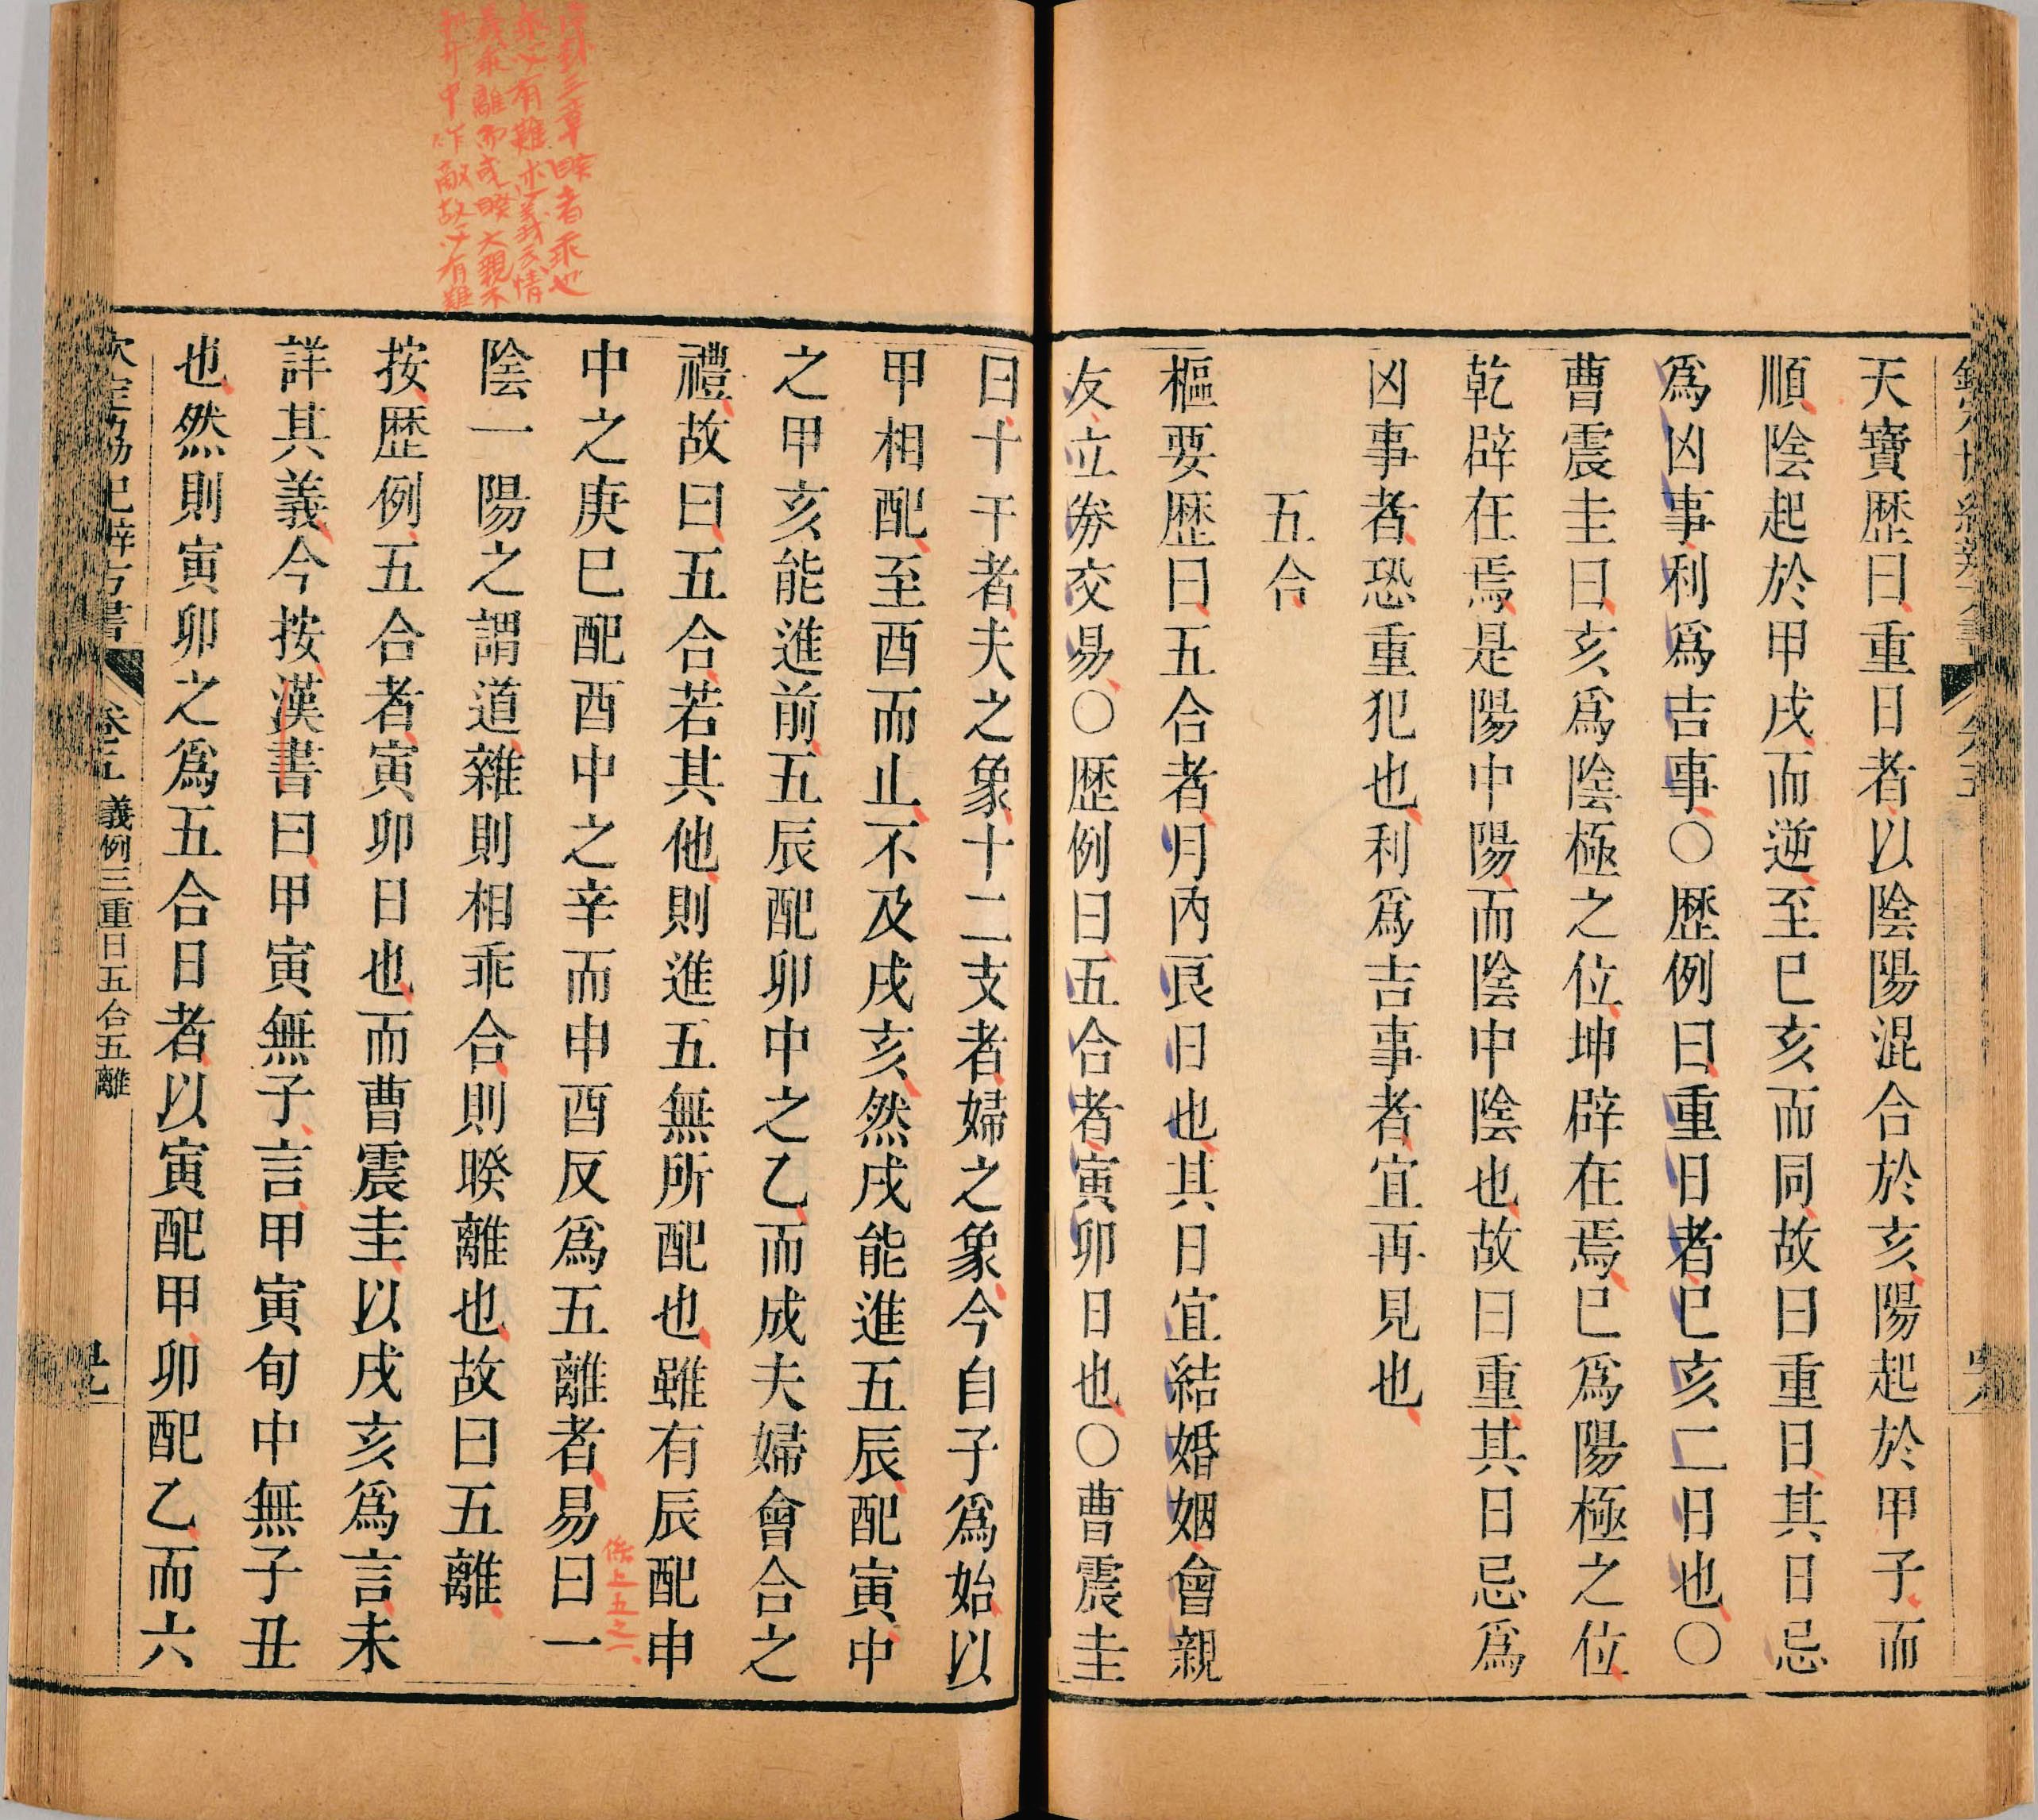 天寶歴曰重日者以陰陽混合於亥陽起於甲子而
順陰起於甲戌而逆至巳亥而同故曰重日其日忌
爲凶事利爲吉事○歴例曰重日者巳亥二日也○
曹震圭曰亥爲陰極之位坤辟在焉巳爲陽極之位
乾辟在焉是陽中陽而陰中陰也故曰重其日忌爲
凶事者恐重犯也利爲吉事者宜再見也
五合
樞要歴曰五合者月内良日也其日宜結婚姻會親
友立劵交易○歴例曰五合者寅卯日也○曹震圭
曰十干者夫之象十二支者婦之象今自子爲始以
甲相配至酉而止不及戌亥然戌能進五辰配寅中
之甲亥能進前五辰配卯中之乙而成夫婦會合之
禮故曰五合若其他則進五無所配也雖有辰配申
中之庚巳配酉中之辛而申酉反爲五離者易曰一
係上五之一
陰一陽之謂道雜則相乖合則睽離也故曰五離
按歴例五合者寅卯日也而曹震圭以戌亥爲言未
詳其義今按漢書曰甲寅無子言甲寅旬中無子丑
也然則寅卯之爲五合日者以寅配甲卯配乙而六
卷五 義例三重日五合五離
卦三章睽者乖也
乖必有難
義乖離而成睽大親不
中作敵故必有難